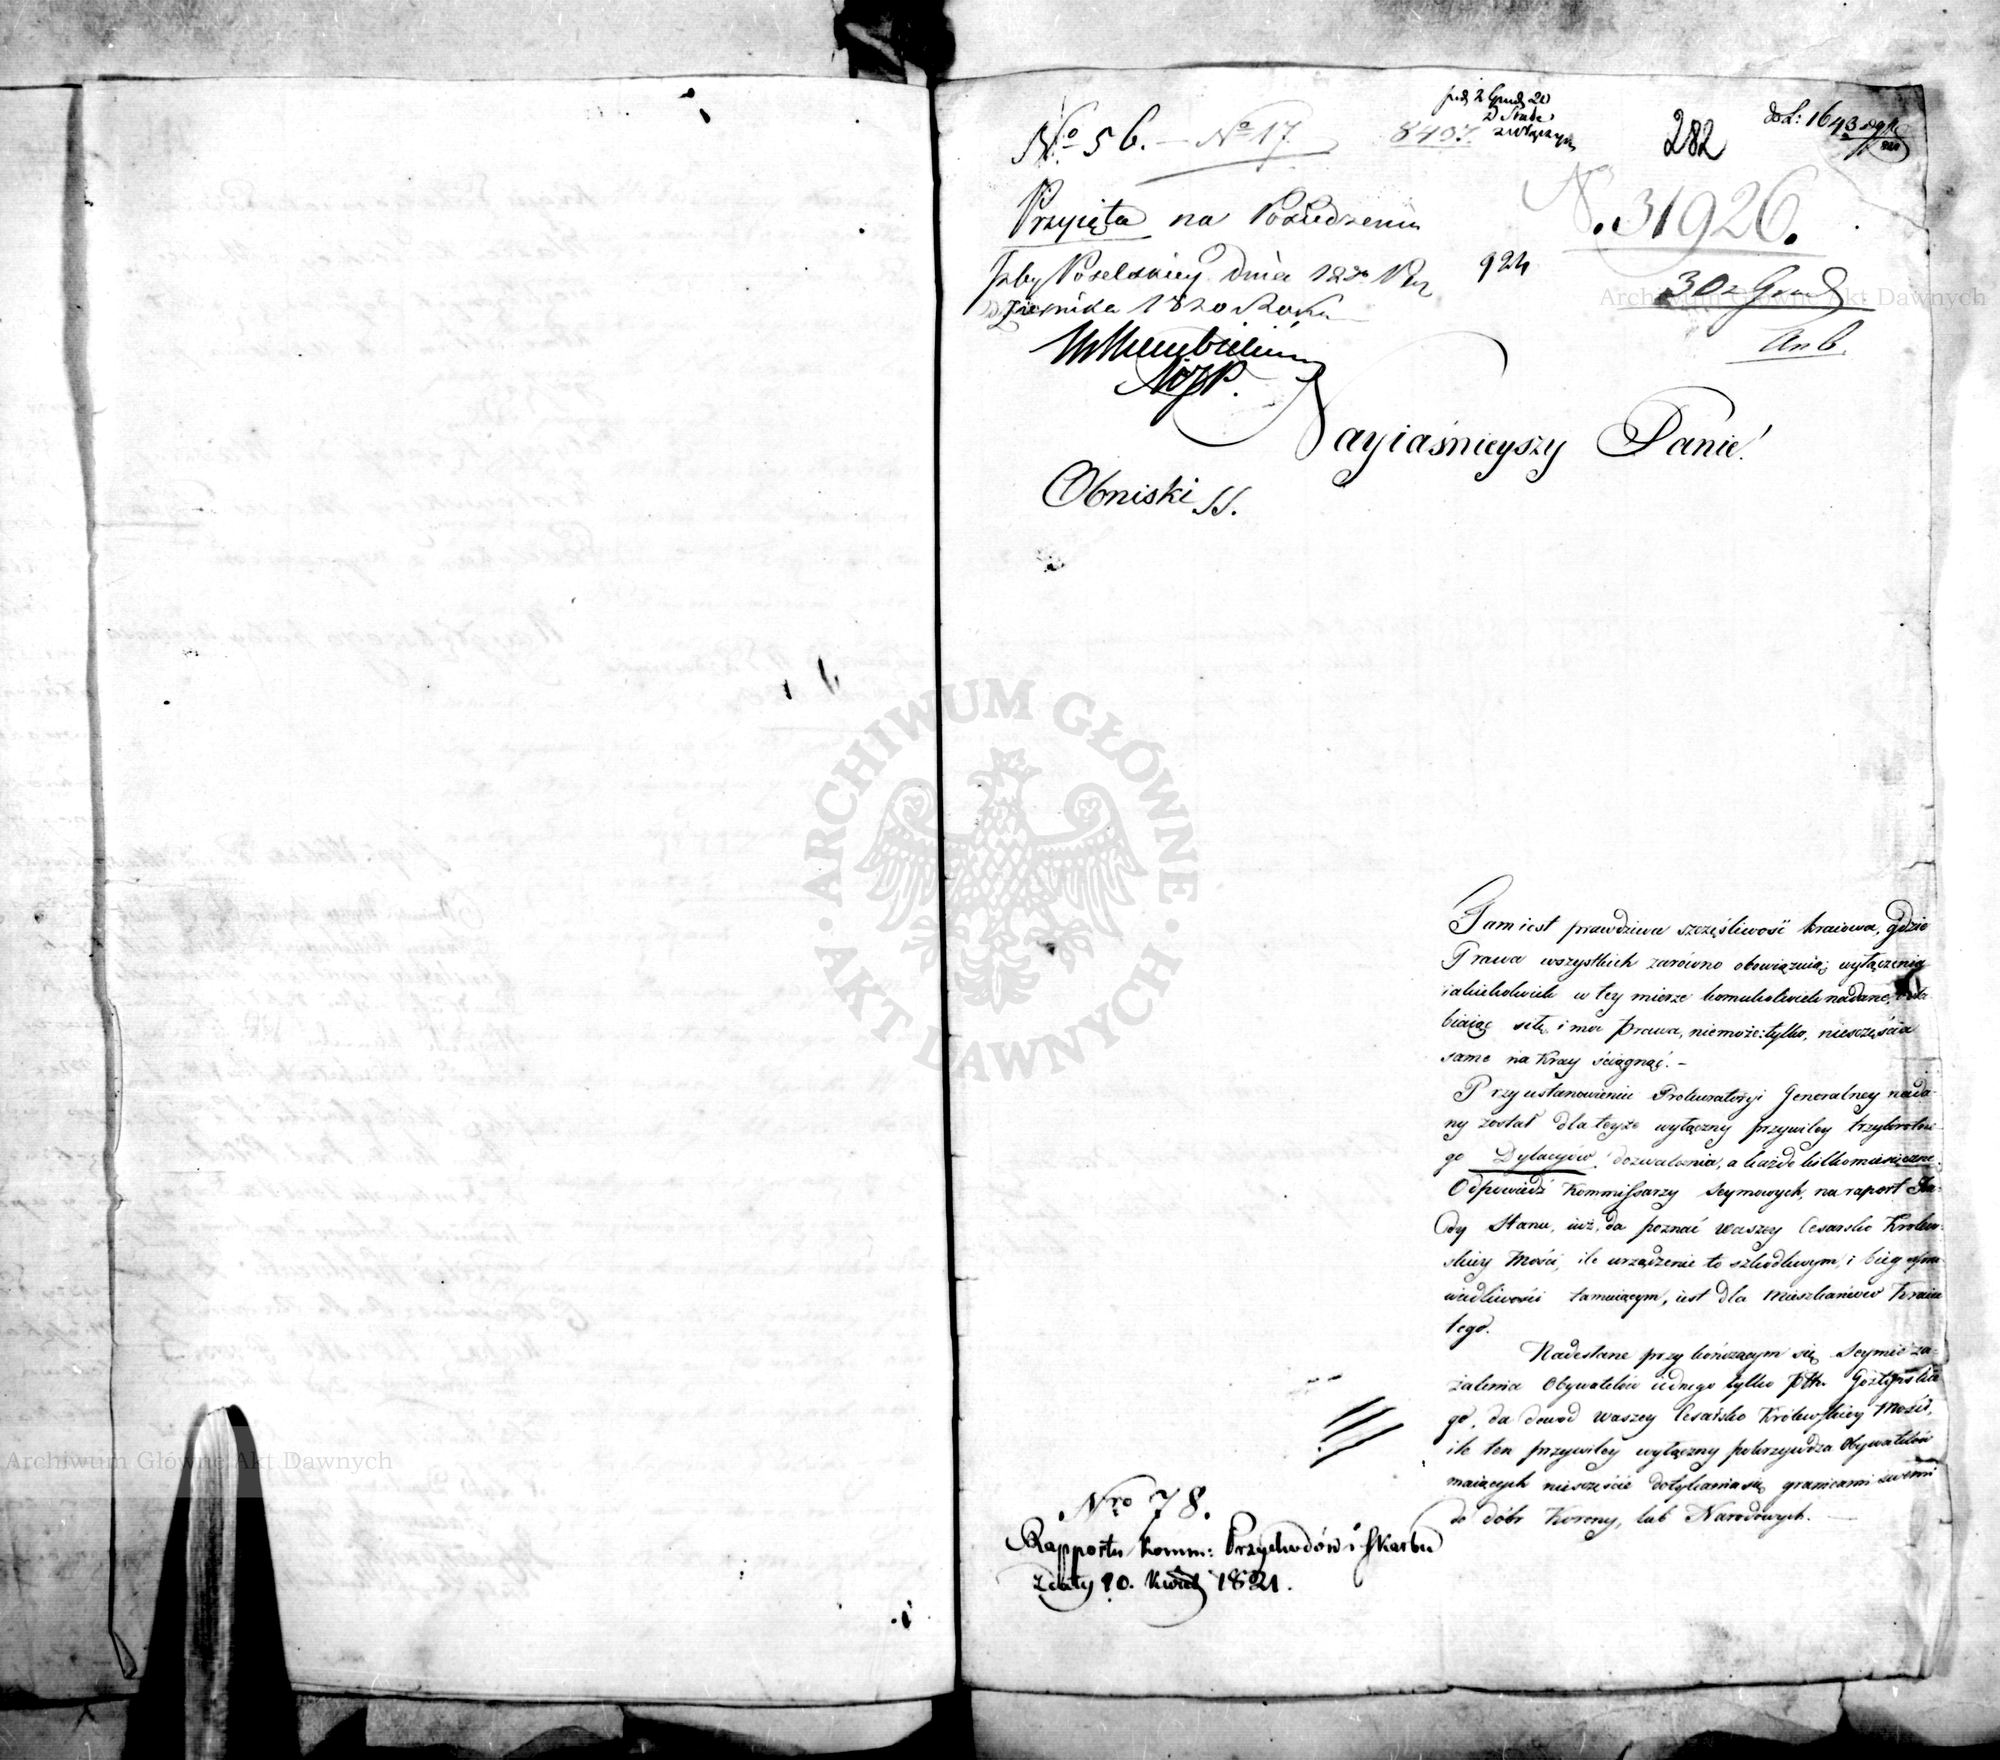 No 56. — No 17.
8407.
282
N. 31926.
Przyięta na Posiedzeniu
Izby Poselskiey Dnia 12go Paz
dziernika 1820 Roku
924
30 Grud
Nayiaśnieyszy Panie!
Obniski SS.
Tam iest prawdziwa szczęśliwość kraiowa, gdzie
Prawa wszystkich zarówno obowiązuią; wyłączenia
iakiekolwiek w tey mierze komukolwiek nadane,
biaiąc siłę i moc Prawa, niemoże: tylko, nieszczęścia
same na Kray ściągnąć. —
Przy ustanowieniu Prokuratoryi Generalney nada-
ny został dla teyże wyłączny przywiley trzykrotne-
go Dylacyów dozwalania, a każde kilkomiesięczne.
Odpowiedź Kommissarzy Seymowych, na raport Ra-
dy Stanu, iuż, da poznać Waszey Cesarsko Królew-
skiey Mości, ile urządzenie to szkodliwym, i bieg spra-
wiedliwości tamuiącym, iest dla Mieszkańców Kraiu
tego.
Nadesłane przy kończącym się Seymie za-
żalenia Obywatelów iednego tylko Pttu Gostyńskie
go, da dowód Waszey Cesarsko Królewskiey Mości,
ile ten przywiley wyłączny pokrzywdza Obywatelów
maiących nieszczęście dotykania się granicami swemi
do dóbr Korony, lub Narodowych. —
Nro 78.
Rapportu Komm: Przychodów i Skarbu
z daty 10. Kwiet 1821.
ARCHIWUM GŁÓWNE AKT DAWNYCH
Archiwum Główne Akt Dawnych
Archiwum Główne Akt Dawnych